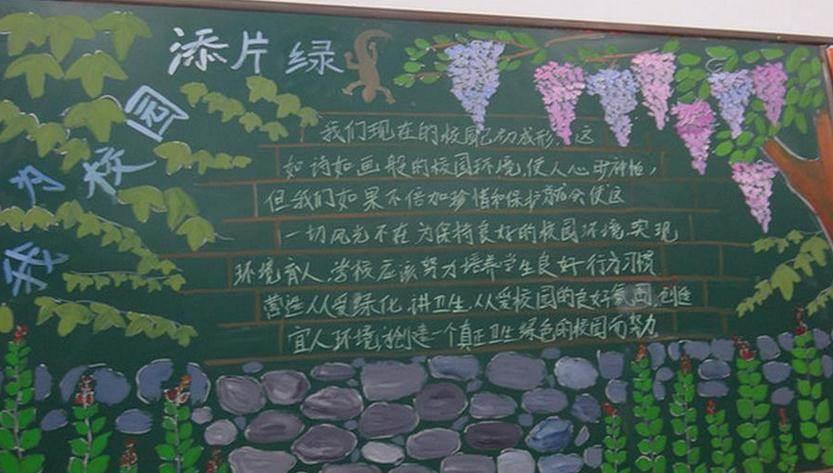 我为校园
添片绿
我们现在的校园已初成形，这
如诗如画般的校园环境，使人心旷神怡，
但我们如果不倍加珍惜和保护就会使这
一切风光不在为保持良好的校园环境实现
环境育人，学校应该努力培养学生良好行为习惯
营造人人爱绿化，讲卫生，人人爱校园的良好氛围，创造
宜人环境，创建一个真正卫生绿色的校园而努力